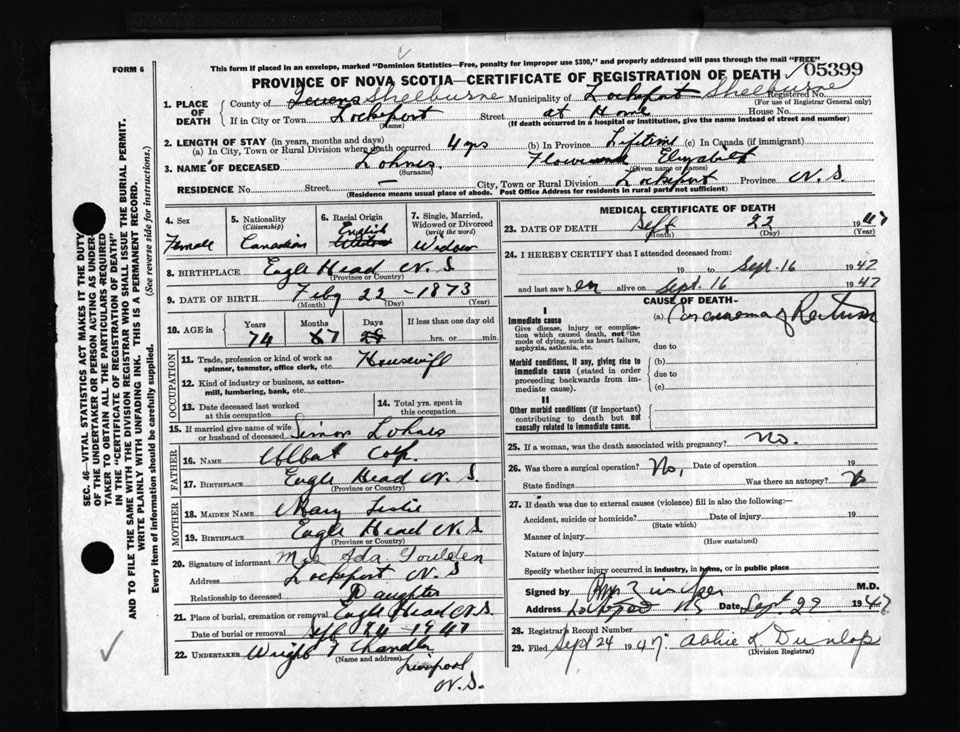 FORM 6
This form if placed in an envelope, marked "Dominion Statistics—Free, penalty for improper use $300," and properly addressed will pass through the mail "FREE"
PROVINCE OF NOVA SCOTIA—CERTIFICATE OF REGISTRATION OF DEATH
05399
1. PLACE OF DEATH
County of Queens Shelburne Municipality of Lockeport Shelburne Registered No.
(For use of Registrar General only)
If in City or Town Lockeport Street at Home House No.
(Name) (If death occurred in a hospital or institution, give the name instead of street and number)
2. LENGTH OF STAY (in years, months and days)
(a) In City, Town or Rural Division where death occurred 4 yrs (b) In Province Lifetime (c) In Canada (if immigrant)
3. NAME OF DECEASED Lohnes Elizabeth
(Surname) (Given name or names)
RESIDENCE No. Street — City, Town or Rural Division Lockeport Province N.S.
(Residence means usual place of abode. Post Office Address for residents in rural parts not sufficient)
4. Sex Female
5. Nationality (Citizenship) Canadian
6. Racial Origin English
7. Single, Married, Widowed or Divorced (write the word) Widow
8. BIRTHPLACE Eagle Head N.S.
(Province or Country)
9. DATE OF BIRTH Feby 22 - 1873
(Month) (Day) (Year)
10. AGE in Years Months Days If less than one day old
74 7 hrs. or min.
OCCUPATION
11. Trade, profession or kind of work as spinner, teamster, office clerk, etc. Housewife
12. Kind of industry or business, as cotton-mill, lumbering, bank, etc.
13. Date deceased last worked at this occupation
14. Total yrs. spent in this occupation
15. If married give name of wife or husband of deceased Simon Lohnes
FATHER
16. NAME Albert Colp
17. BIRTHPLACE Eagle Head N.S.
(Province or Country)
MOTHER
18. MAIDEN NAME Mary Leslie
19. BIRTHPLACE Eagle Head N.S
(Province or Country)
20. Signature of informant Mrs Ada Goulden
Address Lockeport N.S
Relationship to deceased Daughter
21. Place of burial, cremation or removal Eagle Head N.S.
Date of burial or removal Sept 24 - 1947
22. UNDERTAKER Wright F Chandler
(Name and address) Liverpool
N.S.
MEDICAL CERTIFICATE OF DEATH
23. DATE OF DEATH Sept 22 1947
(Month) (Day) (Year)
24. I HEREBY CERTIFY that I attended deceased from:
19 to Sept. 16 1947
and last saw her alive on Sept. 16 1947
CAUSE OF DEATH—
I
Immediate cause
Give disease, injury or complication which caused death, not the mode of dying, such as heart failure, asphyxia, asthenia, etc.
(a) Carcinoma of Rectum
due to
Morbid conditions, if any, giving rise to immediate cause (stated in order proceeding backwards from immediate cause).
(b)
due to
(c)
II
Other morbid conditions (if important) contributing to death but not causally related to immediate cause.
25. If a woman, was the death associated with pregnancy? No.
26. Was there a surgical operation? No, Date of operation 19
State findings Was there an autopsy?
27. If death was due to external causes (violence) fill in also the following:—
Accident, suicide or homicide? Date of injury 19
(State which)
Manner of injury
(How sustained)
Nature of injury
Specify whether injury occurred in industry, in home, or in public place
Signed by M.D.
Address Lockeport NS Date Sept 29 1947
28. Registrar's Record Number
29. Filed Sept 24 1947. Abbie L Dunlop
(Division Registrar)
SEC. 46—VITAL STATISTICS ACT MAKES IT THE DUTY
OF THE UNDERTAKER OR PERSON ACTING AS UNDER-
TAKER TO OBTAIN ALL THE PARTICULARS REQUIRED
IN THE "CERTIFICATE OF REGISTRATION OF DEATH"
AND TO FILE THE SAME WITH THE DIVISION REGISTRAR WHO SHALL ISSUE THE BURIAL PERMIT.
WRITE PLAINLY WITH UNFADING INK. THIS IS A PERMANENT RECORD.
Every item of information should be carefully supplied. (See reverse side for instructions.)